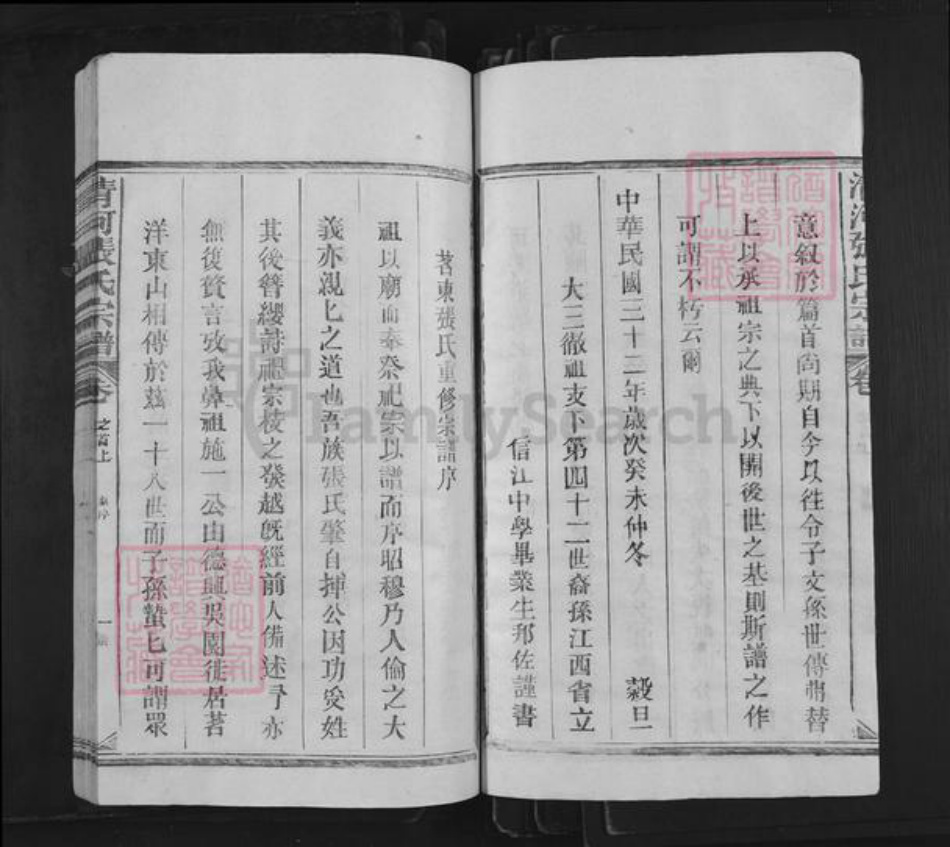 意叙於篇首尚期自今以往令子文孫世傳弗替
上以承祖宗之典下以開後世之基則斯譜之作
可謂不朽云爾
中華民國三十二年歲次癸未仲冬 穀旦
大三徹祖支下第四十二世裔孫江西省立
信江中學畢業生邦佐謹書
茗東張氏重修宗譜序
祖以廟而奉祭祀宗以譜而序昭穆乃人倫之大
義亦親匕之道也吾族張氏肇自揮公因功受姓
其後簪纓詩禮宗枝之發越旣經前人備述予亦
無復贅言攷我鼻祖施一公由德興吳園徙居茗
洋東山相傳於茲一十八世而子孫蟄匕可謂眾
清河張氏宗譜
卷
之首上
清河張氏宗譜
卷
FamilySearch